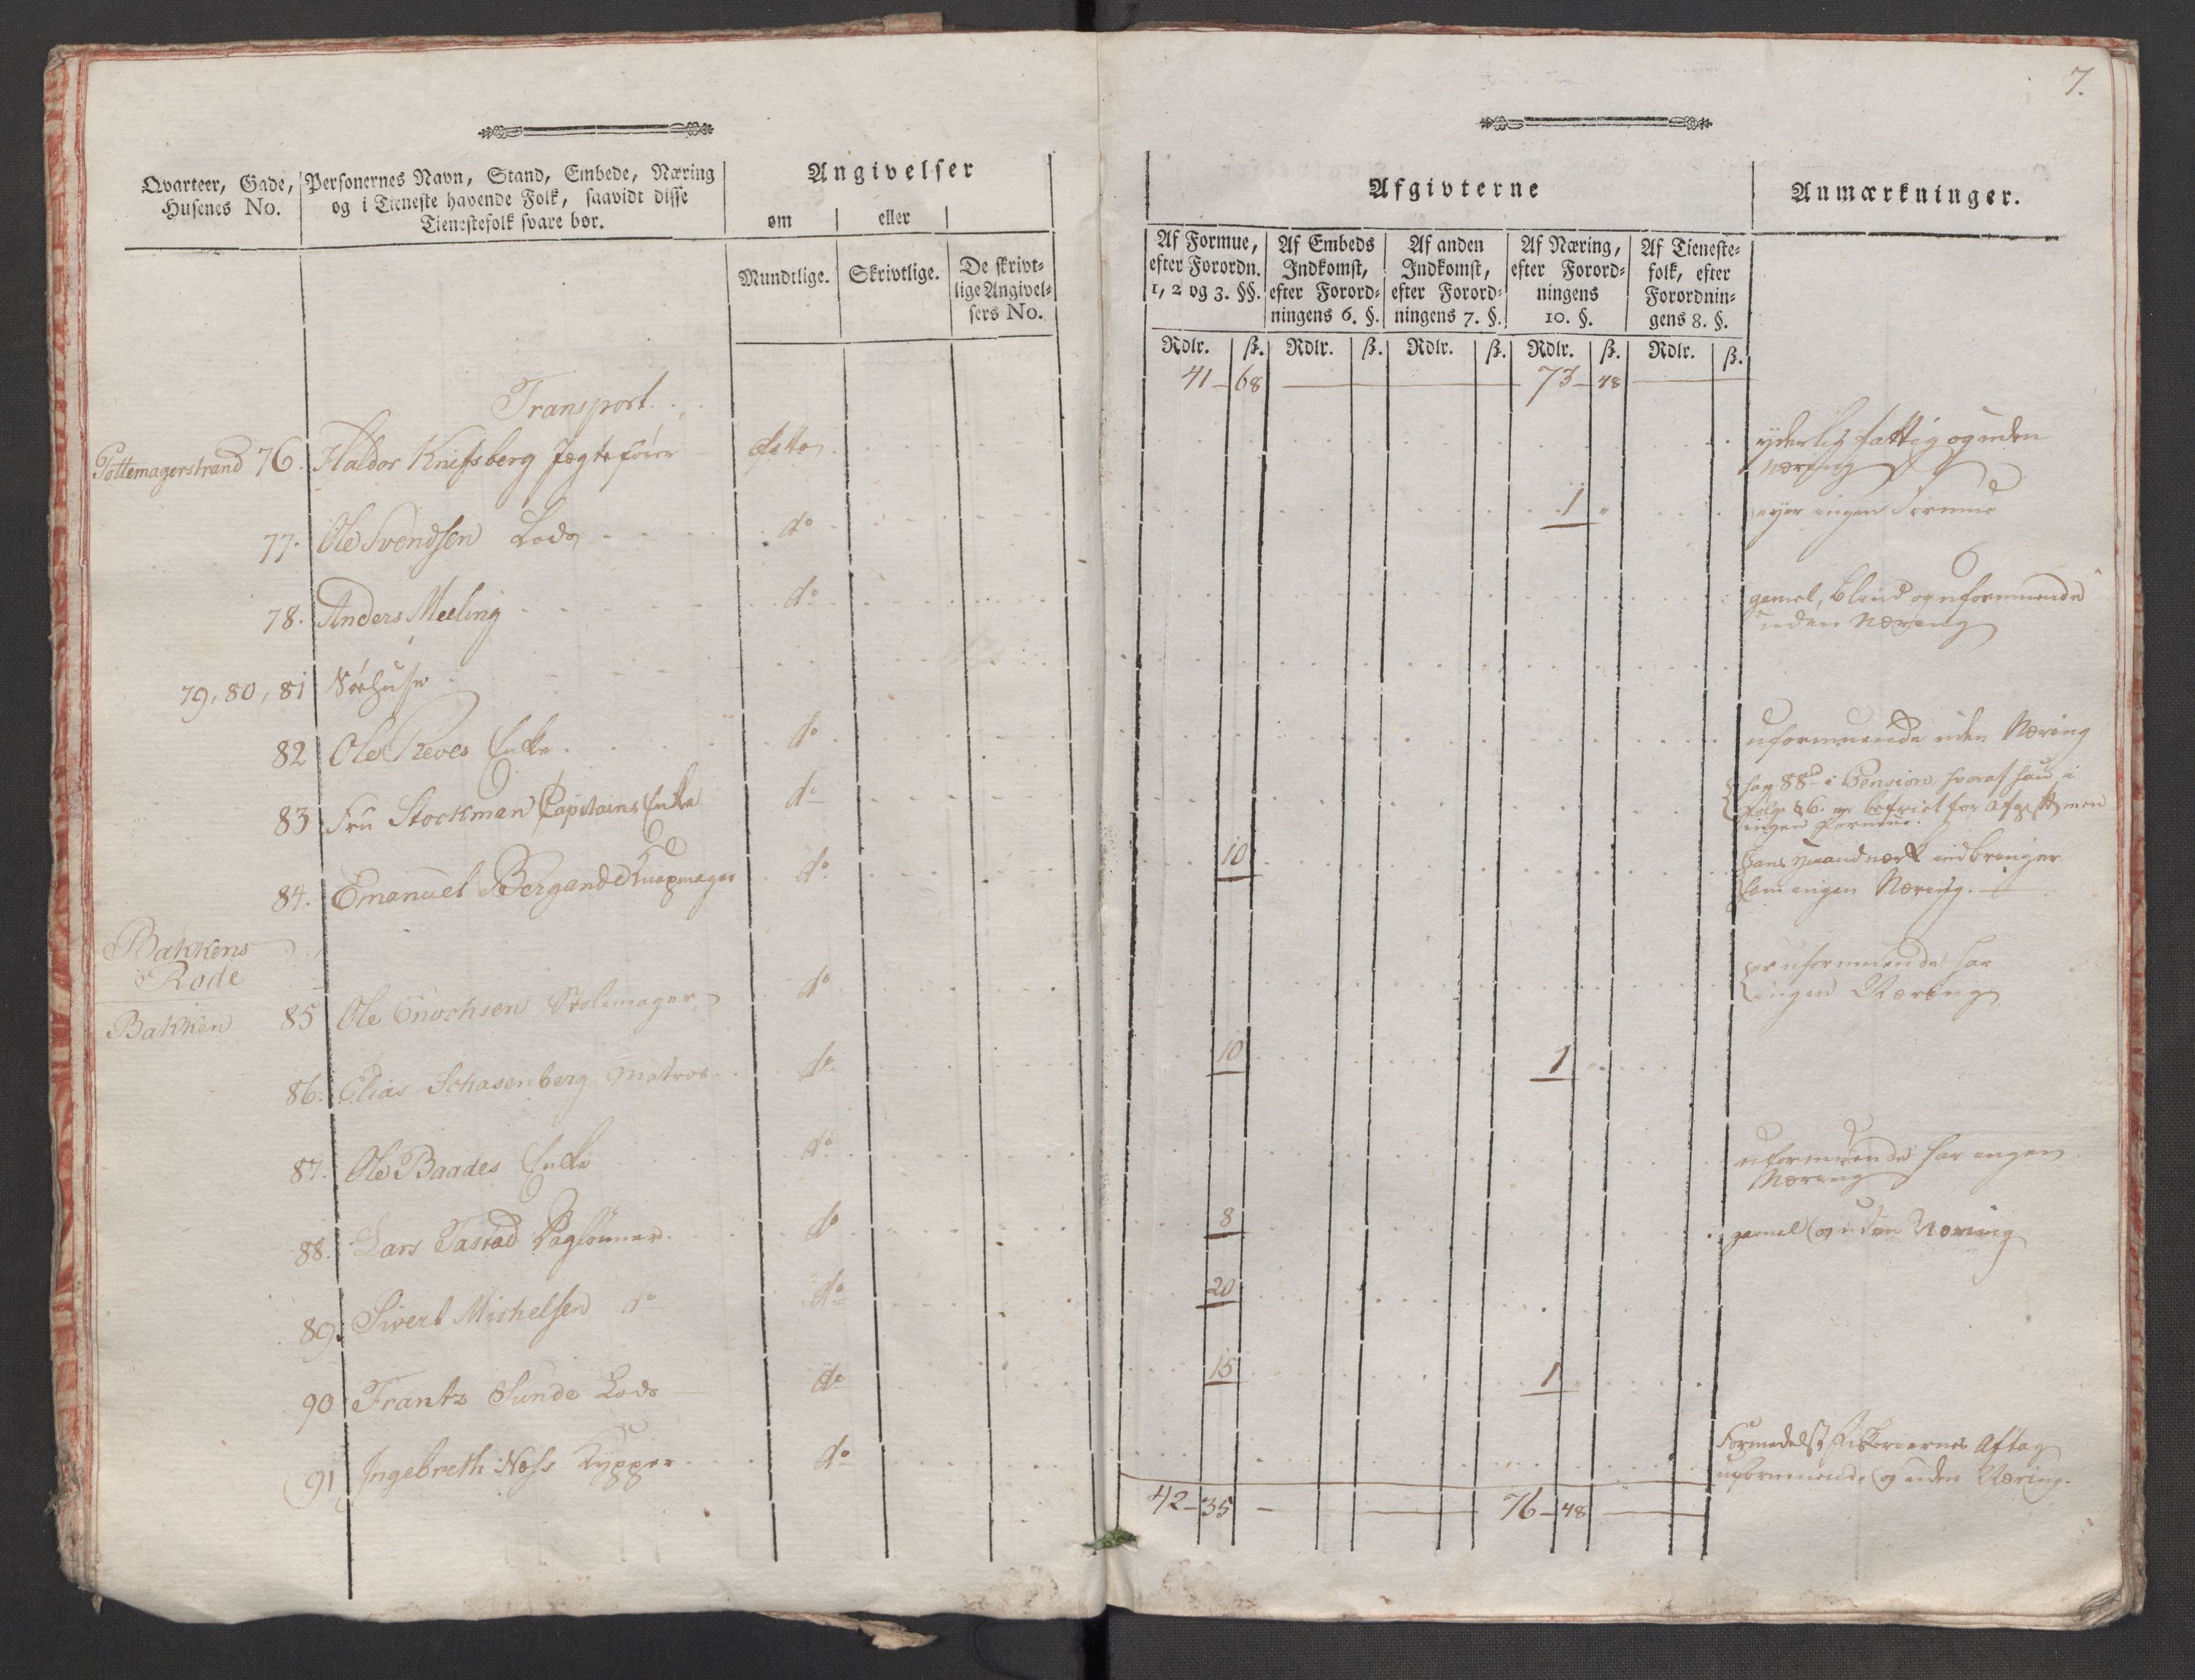 7.
Qvarteer, Gade, Husenes No.
Personernes Navn, Stand, Embede, Næring og i Tieneste havende Folk, saavidt disse Tienestefolk svare bør.
Angivelser
om eller
Mundtlige. Skrivtlige. De skrivtlige Angivelsers No.
Afgivterne
Af Formue, efter Forordn. 1, 2 og 3. §§.
Af Embeds Indkomst, efter Forordningens 6. §.
Af anden Indkomst, efter Forordningens 7. §.
Af Næring, efter Forordningens 10. §.
Af Tienestefolk, efter Forordningens 8. §.
Anmærkninger.
Rdlr. ß. Rdlr. ß. Rdlr. ß. Rdlr. ß. Rdlr. ß.
Transport. 41 - 68 73 - 48
Pottemagerstrand 76. Haldor Knifsberg Jægtefører yderlig fattig og uden
Næring
77. Ole Svendsen Lods do 1 " eyer ingen Formue
78. Anders Meeling do gamel, blind og uformuende
uden Næring
79, 80, 81 Söehuse
82 Ole Reves Enke. do uformuende uden Næring
83 Fru Stockman Capitains Enke do har 88 rd i Pension, hvoraf hun i
følge § 6. er befriet for Afgift, men
ingen Formue.
84. Emanuel Bergande Knapmager do 10 hans Haandværk indbringer
ham ingen Næring.
Bakkens
Rode
Bakken 85 Ole Enochsen Stolemager do er uformuende har
ingen Næring
86. Elias Schasenberg Matros. do 10 1
87. Ole Baades Enke do uformuende har ingen
Næring
88. Lars Tastad Daglønner. do 8 gamel og uden Næring
89. Sivert Michelsen do do 20
90 Frantz Sunde Lods do 15 1
91 Ingebreth Næss Kypper do Formedelst Fiskeriernes Aftag
uformuende og uden Næring.
42 - 35 - 76 - 48